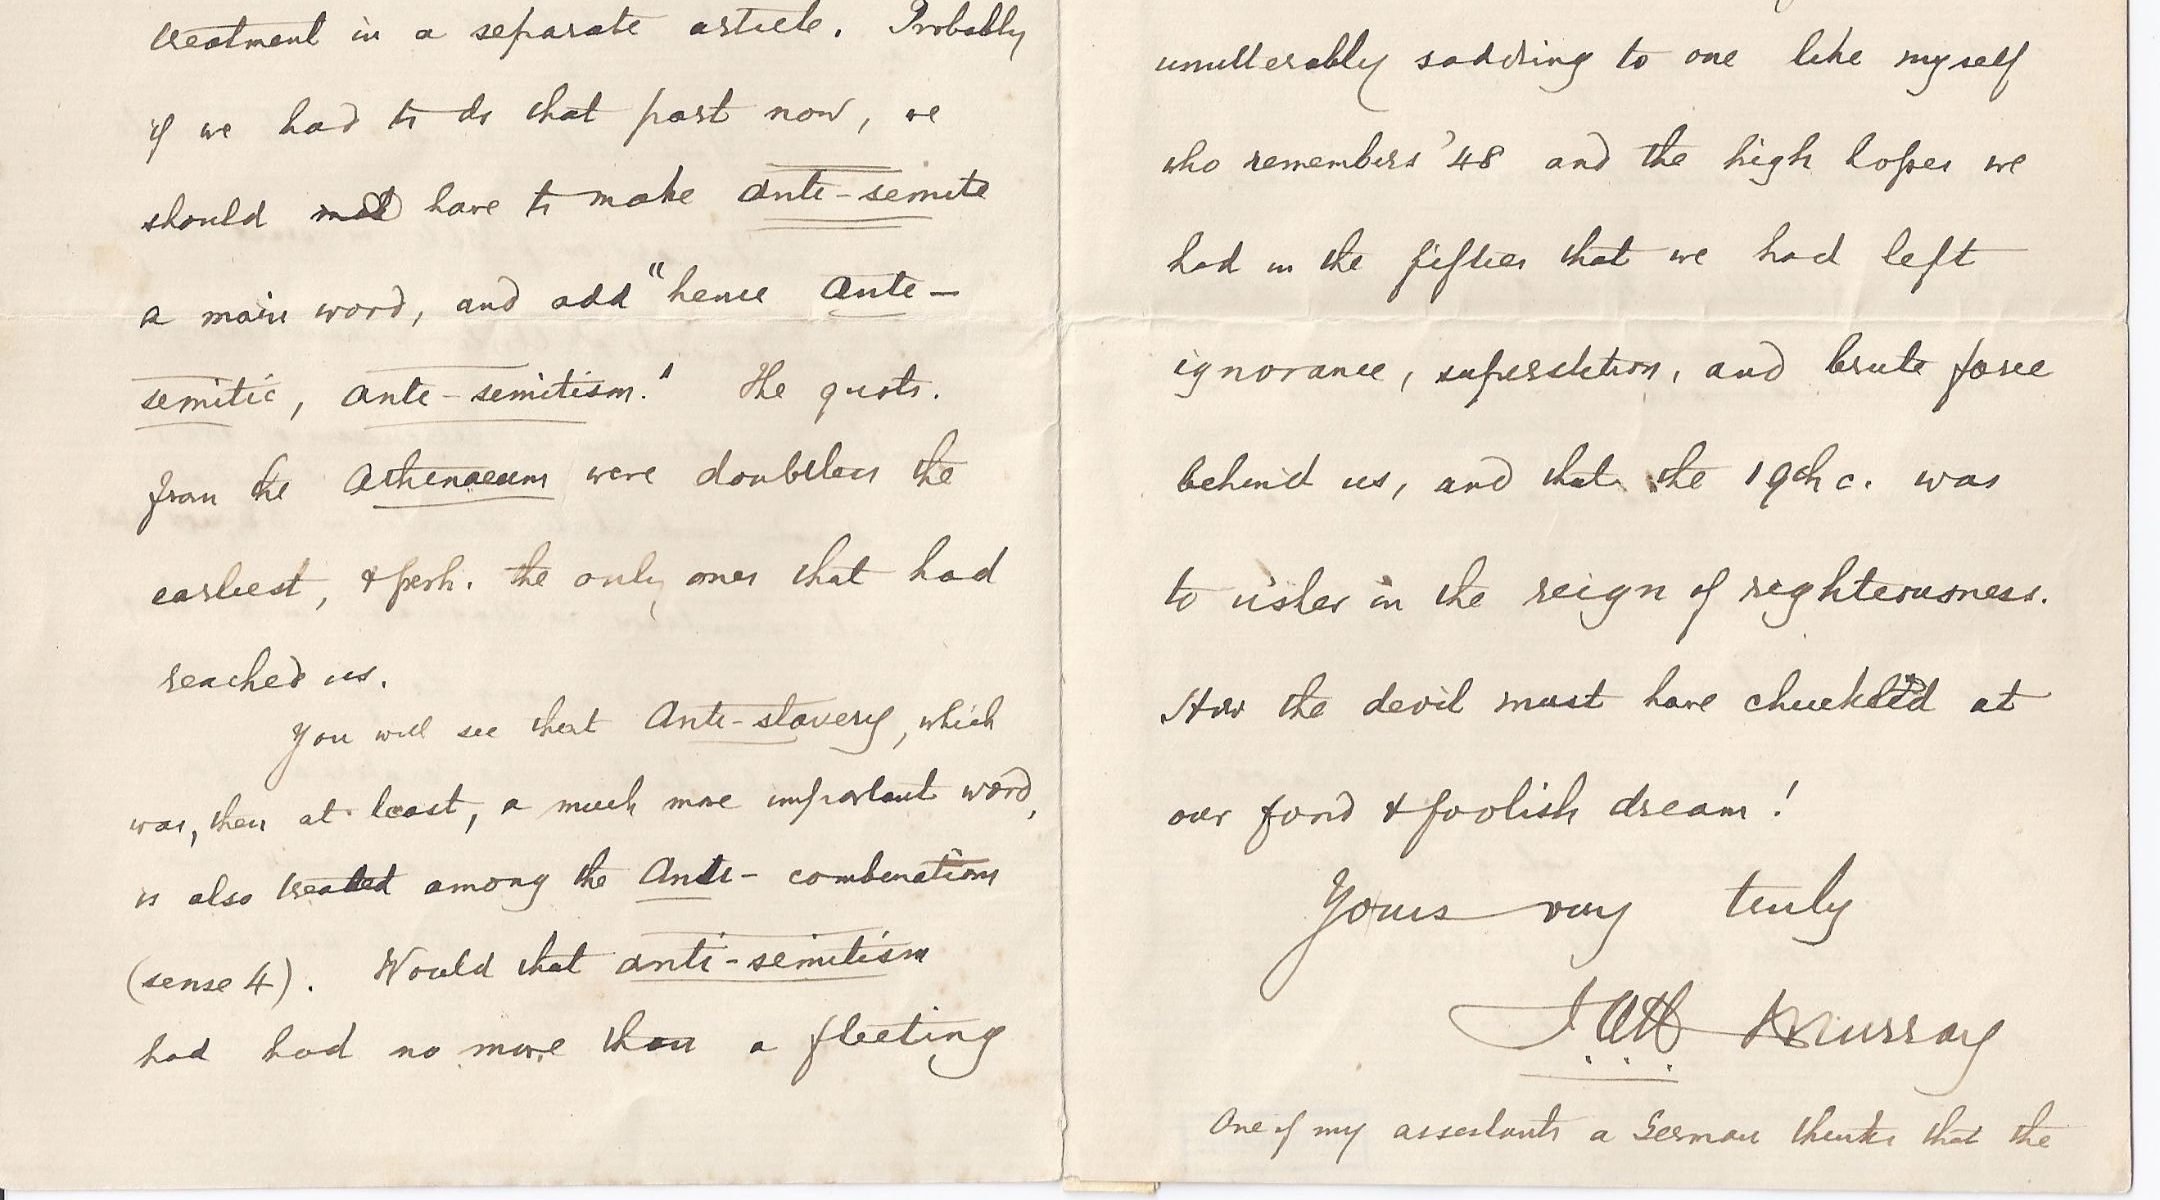 treatment in a separate article. Probably
if we had to do that part now, we
should have to make Anti-semite
a main word, and add "hence Anti-
semitic, Anti-semitism." The quots.
from the Athenaeum were doubtless the
earliest, & perh. the only ones that had
reached us.
You will see that Anti-slavery, which
was, then at least, a much more important word,
is also treated among the Anti- combinations
(sense 4). Would that anti-semitism
had had no more than a fleeting
unutterably saddning to one like myself
who remembers '48 and the high hopes we
had in the fifties that we had left
ignorance, superstition, and brute force
behind us, and that the 19th c. was
to usher in the reign of righteousness.
How the devil must have chuckled at
our fond & foolish dream!
Yours very truly
J.A.H. Murray
One of my assistants a German thinks that the